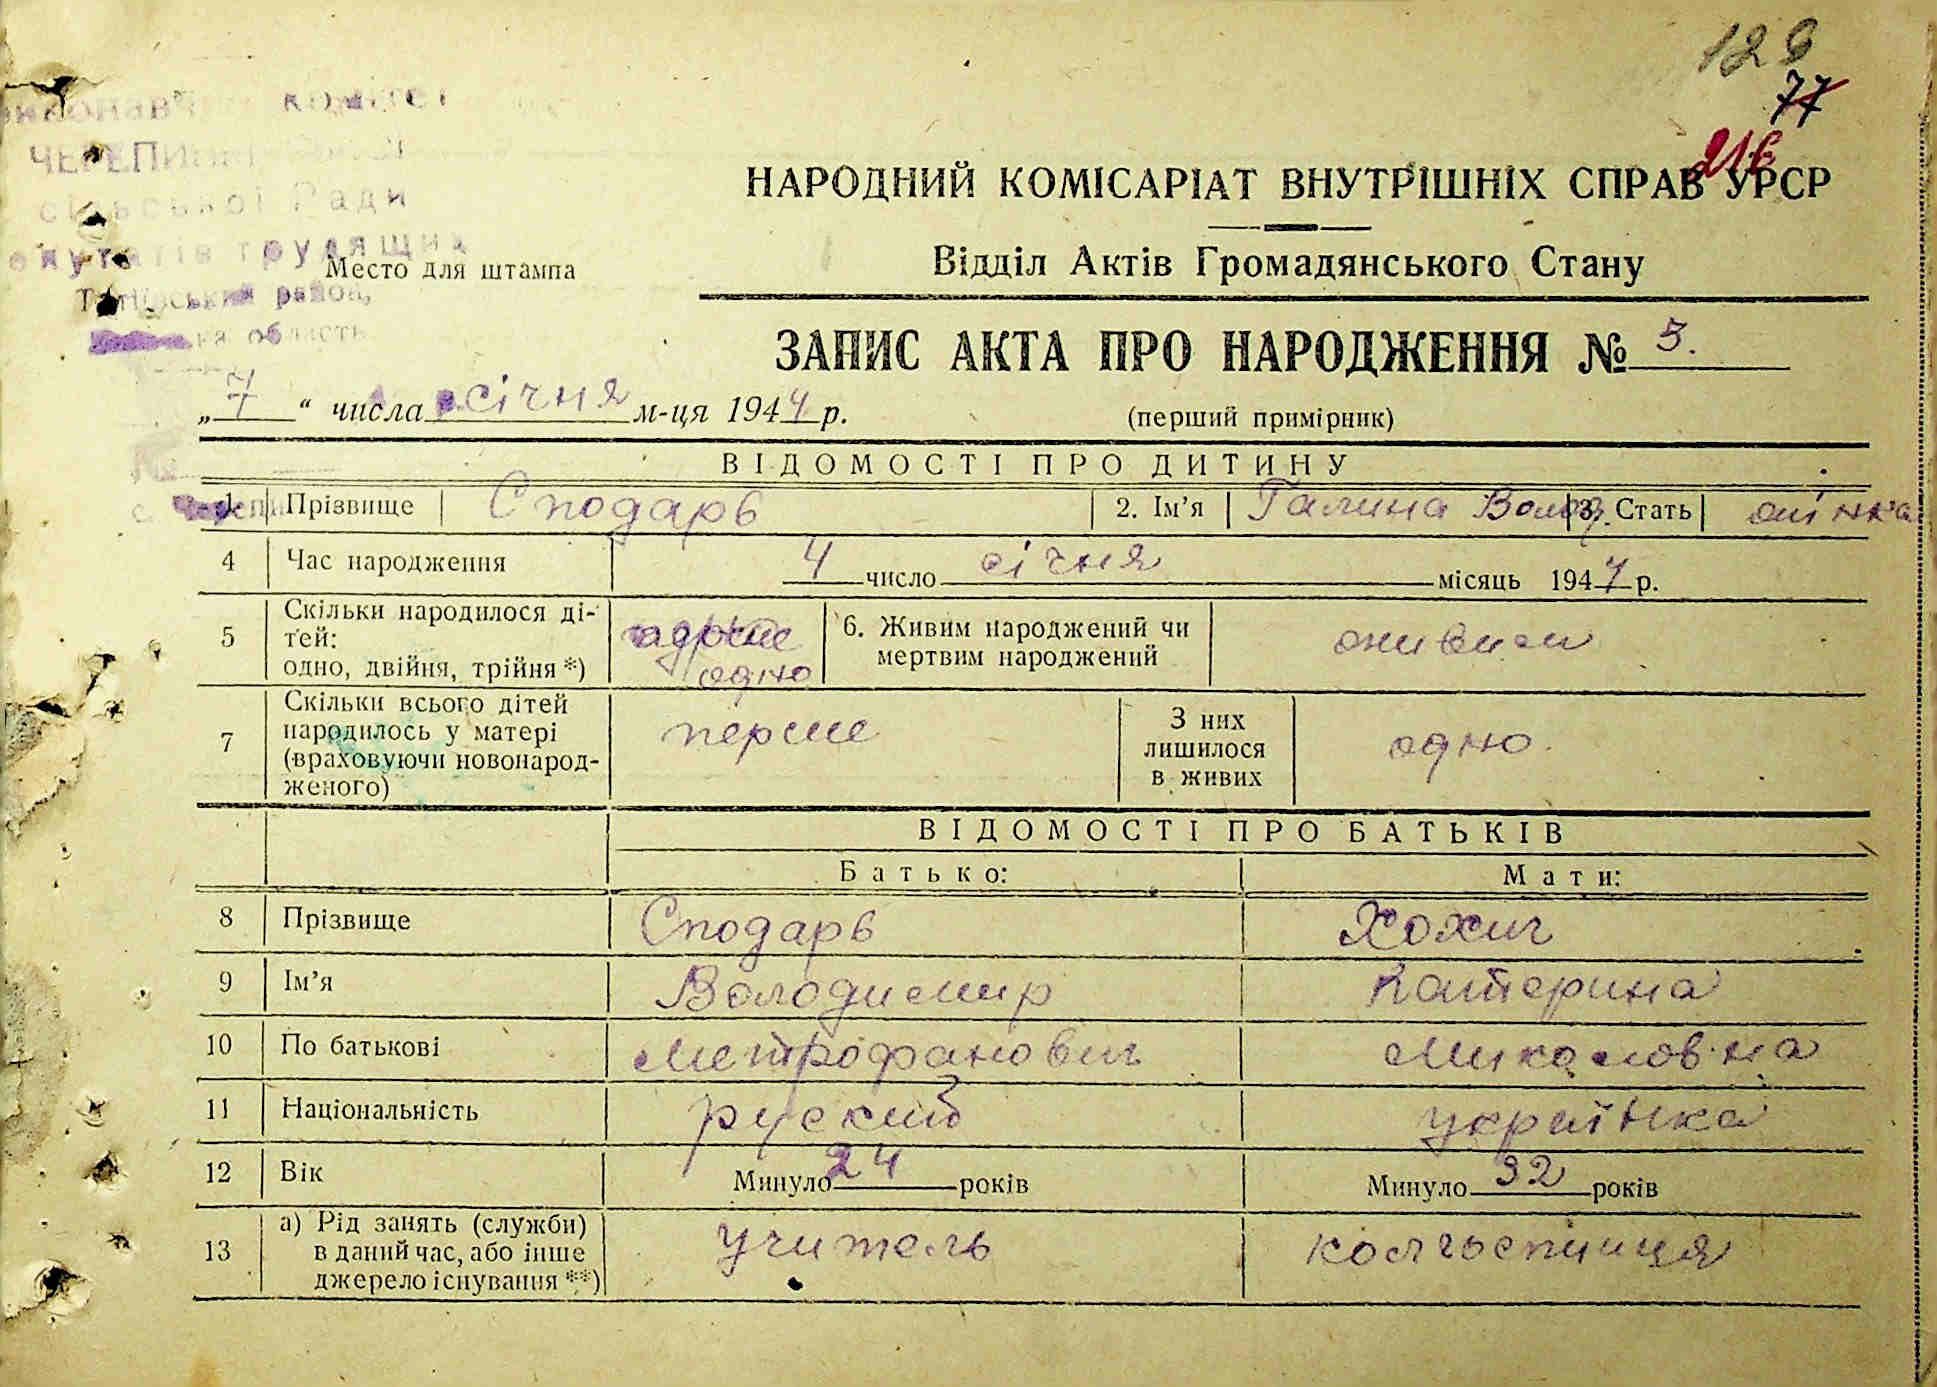 129
77
216
комітет
ЧЕРЕПИН
сільської Ради
депутатів трудящих
район,
область
Место для штампа
НАРОДНИЙ КОМІСАРІАТ ВНУТРІШНІХ СПРАВ УРСР
Відділ Актів Громадянського Стану
ЗАПИС АКТА ПРО НАРОДЖЕННЯ № 5.
„ 7 “ числа січня м-ця 1944 р.
(перший примірник)
ВІДОМОСТІ ПРО ДИТИНУ
1 Прізвище Сподарь 2. Ім’я Галина Волод. 3. Стать жінка
4 Час народження 4 число січня місяць 1944 р.
5 Скільки народилося ді-
тей:
одно, двійня, трійня *)
одно
6. Живим народжений чи
мертвим народжений
живим
7 Скільки всього дітей
народилось у матері
(враховуючи новонарод-
женого)
перше
З них
лишилося
в живих
одно.
ВІДОМОСТІ ПРО БАТЬКІВ
Батько: Мати:
8 Прізвище Сподарь Хохич
9 Ім’я Володимир Катерина
10 По батькові Метрофанович Миколовна
11 Національність руский українка
12 Вік Минуло 24 років Минуло 32 років
13 а) Рід занять (служби)
в даний час, або інше
джерело існування **)
учитель колгоспниця